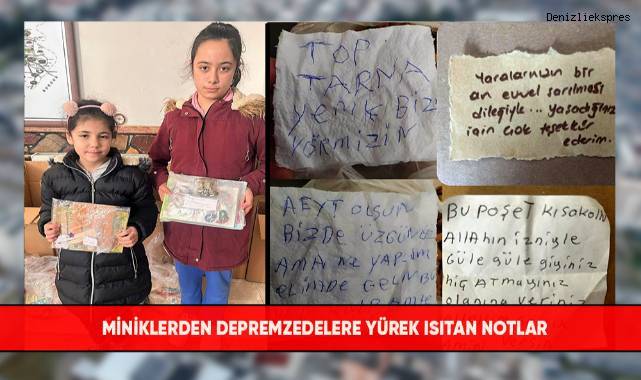 Denizliekspres
TOP
TARNA
YEMK BİZ
VERMİZİN
Yaralarınızın bir
an evvel sarılması
dileğiyle... yaşadığınız
için çok teşekkür
ederim.
AEYT OLSUN
BİZDE ÜZGÜN
AMA NE YAPALIM
ELİMDE GELN BU
BU POŞET KISAKOLN
Allahın izniyle
Güle güle giyiniz
hiç ATmayınız
olanına veriniz
MİNİKLERDEN DEPREMZEDELERE YÜREK ISITAN NOTLAR